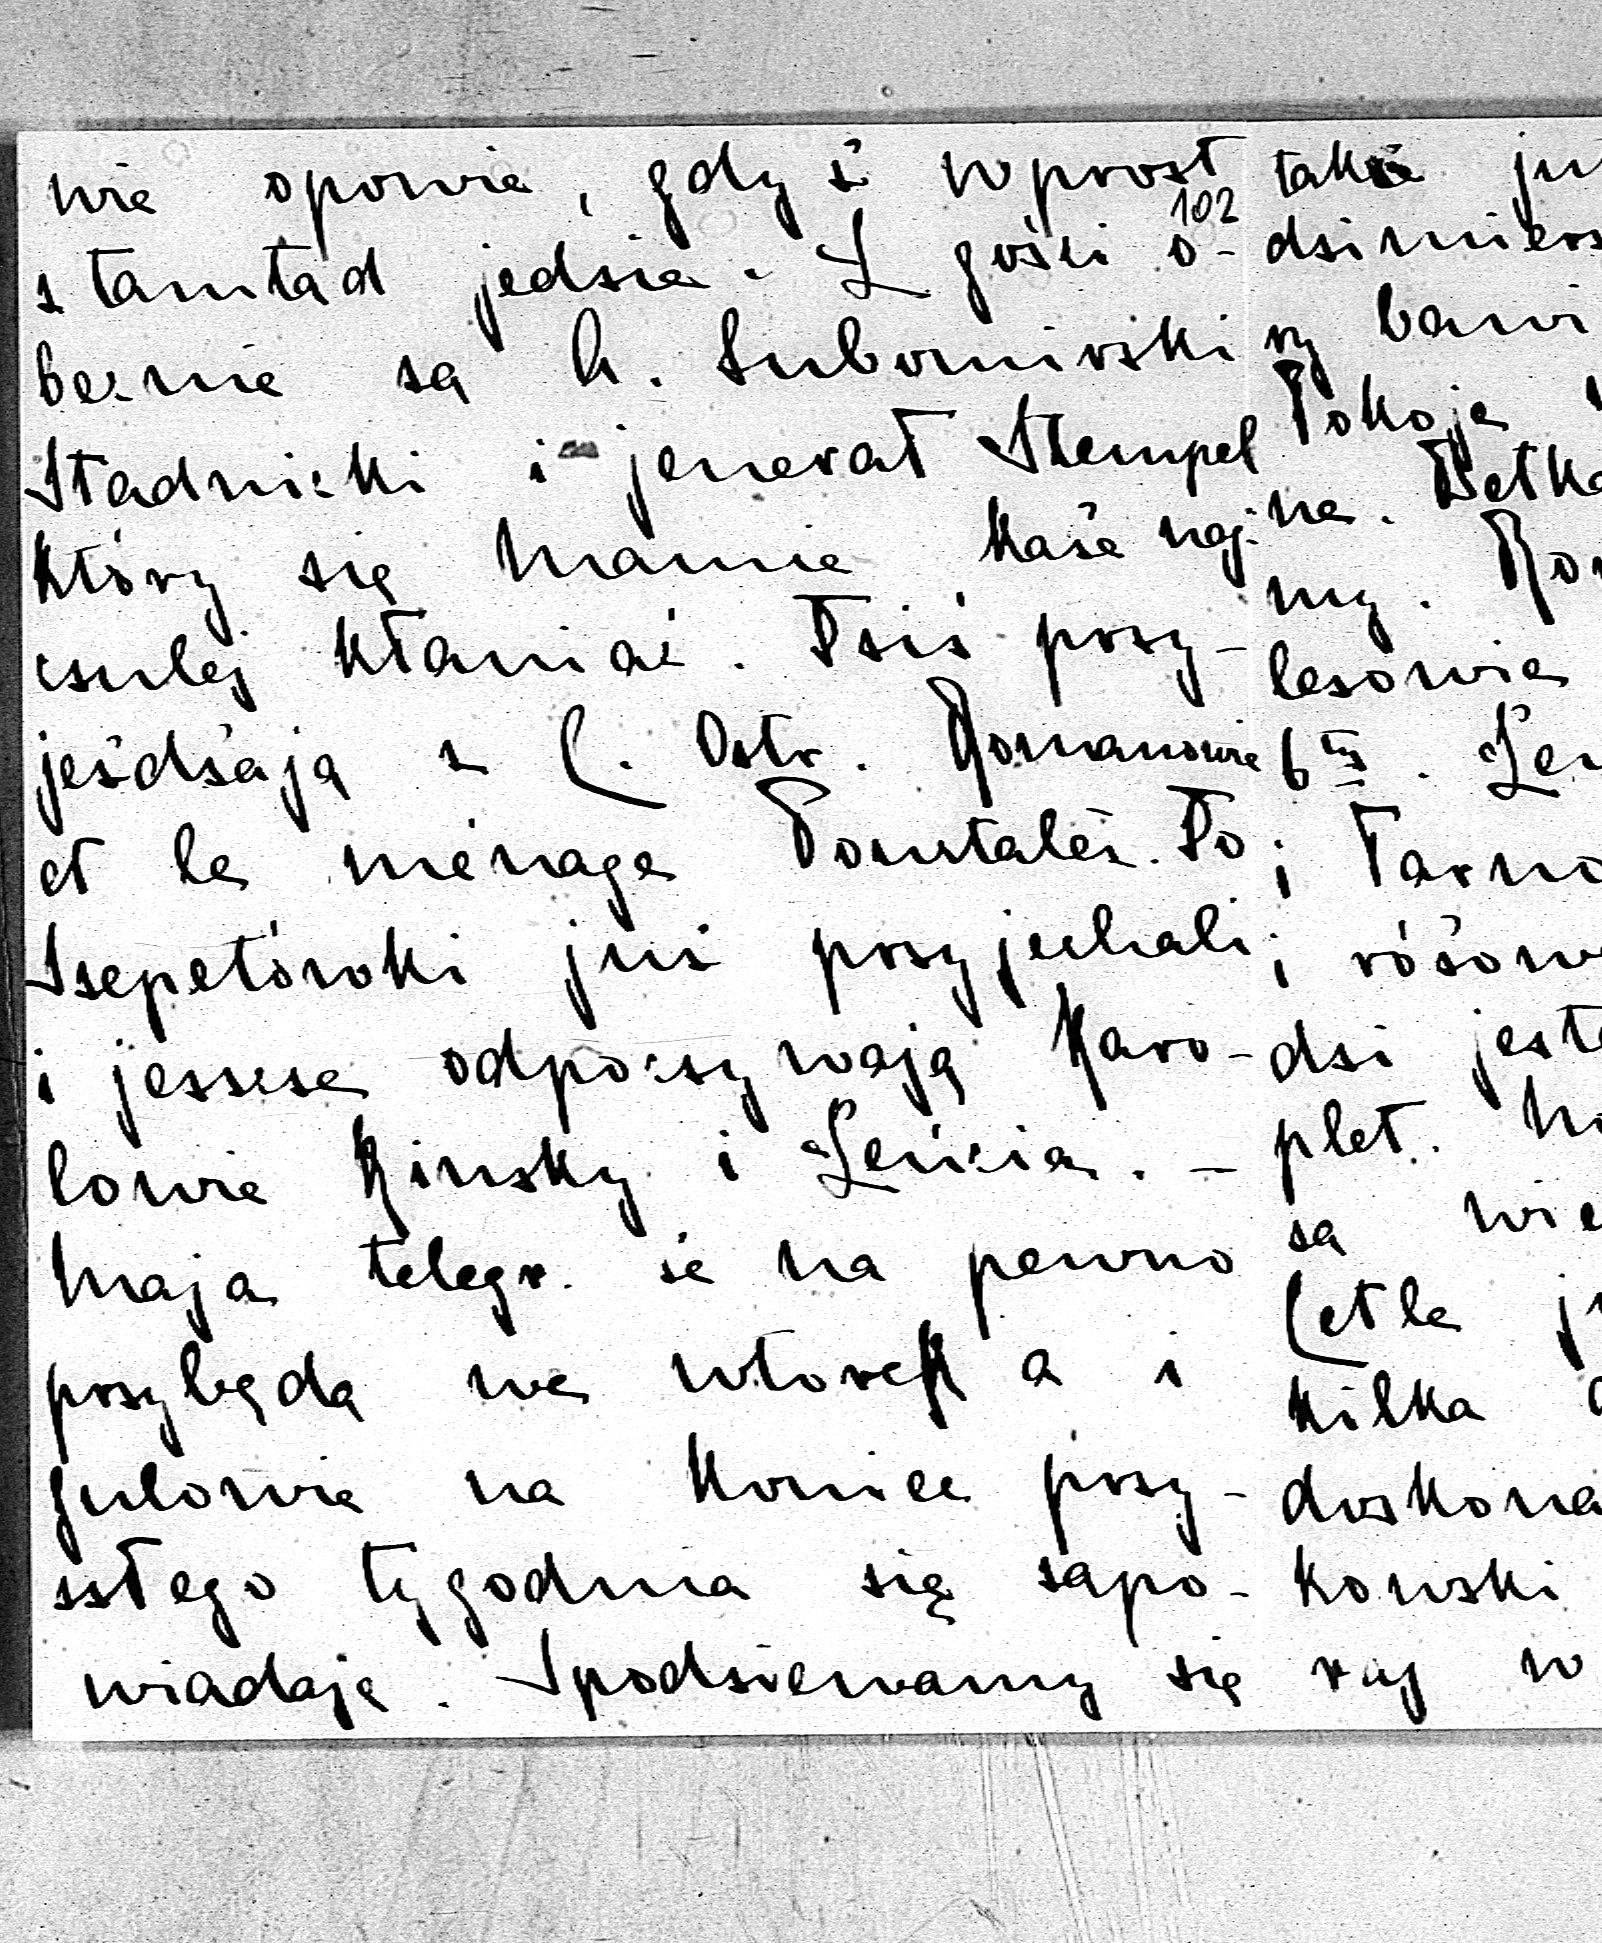 nie opowie, gdyż wprost
102
z tamtad jedzie. Z gości o-
becnie są A. Lubomirski
Stadnicki i jenerał Stempel
który się Mamie każe naj-
czulej kłaniać. Dziś przy-
jeżdżają z C. Ostr. Romanowie
et le ménage Pourtalès. Do
Szepetówki już przyjechali
i jeszcze odpoczywają Karo-
lowie Kinsky i Zeńcia. –
Maja telegr. że na pewno
przybędą we wtorek a i
Julowie na koniec przy-
szłego tygodnia się zapo-
wiadaję. Spodziewamy się
także ju
dzimierz
ry bawi
Pokoje
ne. Betka
my.
lesowie
6
i Tarno
i różowe
dzi jest
plet.
sa wie
(et le
kilka
doskona
kowski
raj w